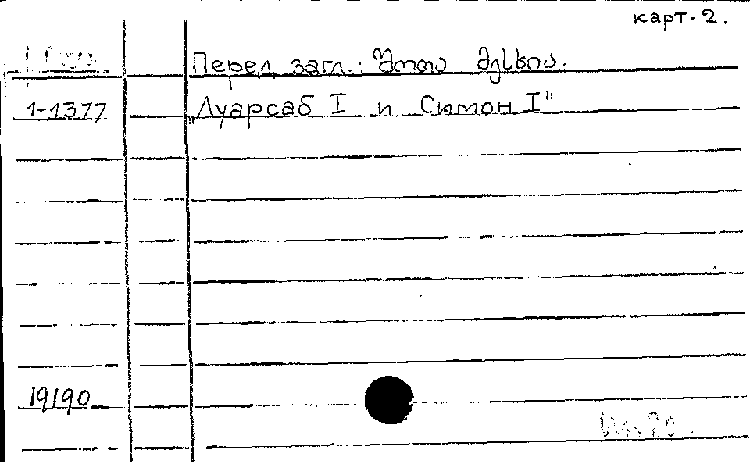 карт. 2.
Перед загл.: შოთა მესხია.
1-1377
„Луарсаб I и Симон I"
19190